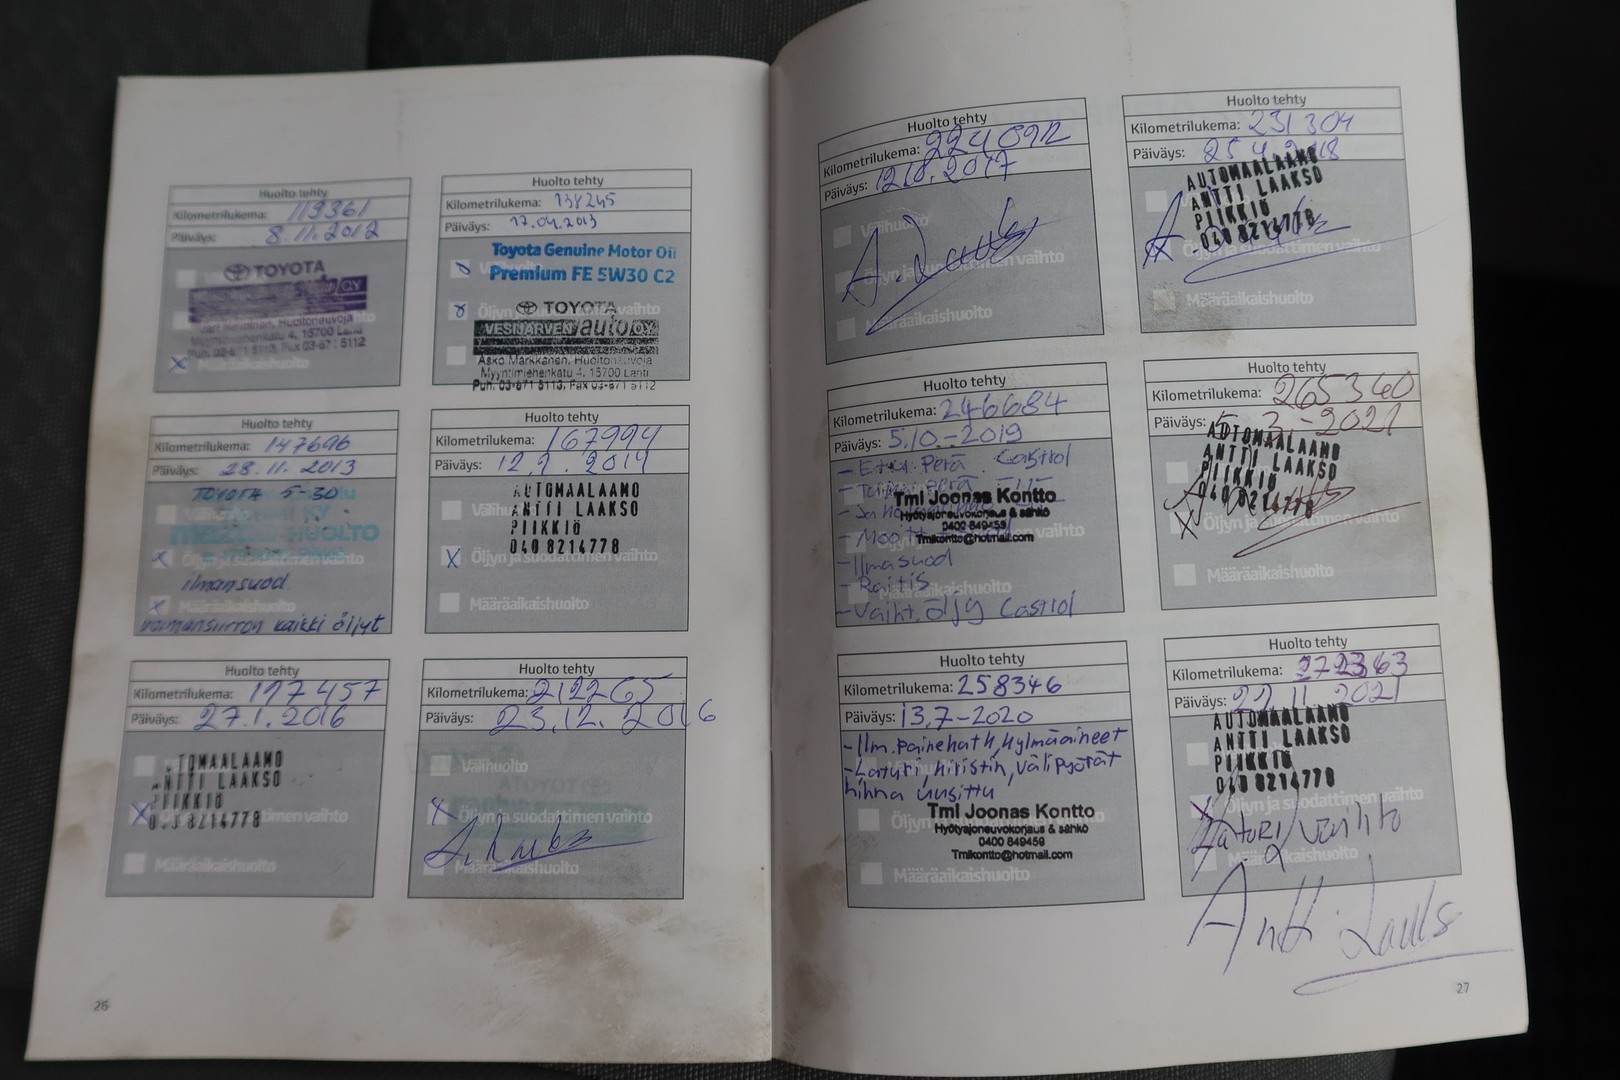 Huolto tehty
Kilometrilukema: 119361
Päiväys: 8.11.2012
TOYOTA
OY
Huoltoneuvoja
Myyntimiehenkatu 4, 15700 Lahti
Puh. 03-871 5113, Fax 03-871 5112
X
Huolto tehty
Kilometrilukema: 138245
Päiväys: 17.04.2013
Toyota Genuine Motor Oil
Premium FE 5W30 C2
TOYOTA
VESIJÄRVEN auto OY
Asko Markkanen, Huoltoneuvoja
Myyntimiehenkatu 4, 15700 Lahti
Puh. 03-871 5113, Fax 03-871 5112
Huolto tehty
Kilometrilukema: 147696
Päiväys: 28.11.2013
TOYOTA 5-30
HUOLTO
X Öljyn ja suodattimen vaihto
ilmansuod.
X Määräaikaishuolto
voimansiirron kaikki öljyt
Huolto tehty
Kilometrilukema: 167994
Päiväys: 12.2.2014
AUTOMAALAAMO
ANTTI LAAKSO
PIIKKIÖ
040 8214778
Välihuolto
X Öljyn ja suodattimen vaihto
Määräaikaishuolto
Huolto tehty
Kilometrilukema: 197457
Päiväys: 27.1.2016
TOMAALAAMO
ANTTI LAAKSO
PIIKKIÖ
8214778
X vaihto
Määräaikaishuolto
Huolto tehty
Kilometrilukema: 212265
Päiväys: 23.12.2016
Välihuolto
X Öljyn ja suodattimen vaihto
Määräaikaishuolto
26
Huolto tehty
Kilometrilukema: 224092
Päiväys: 12.10.2017
Välihuolto
Öljyn ja suodattimen vaihto
Määräaikaishuolto
Huolto tehty
Kilometrilukema: 231304
Päiväys: 25.4.2018
AUTOMAALAAMO
ANTTI LAAKSO
PIIKKIÖ
040 8214778
X Öljyn ja suodattimen vaihto
Määräaikaishuolto
Huolto tehty
Kilometrilukema: 246684
Päiväys: 5.10-2019
- Etu. perä. Castrol
- perä -11-
Tmi Joonas Kontto
Hyötyajoneuvokorjaus & sähkö
0400 849459
Tmikontto@hotmail.com
- Ilmasuod
- Raitis
- Vaiht. öljy Castrol
Huolto tehty
Kilometrilukema: 265340
Päiväys: 5.3.-2021
AUTOMAALAAMO
ANTTI LAAKSO
PIIKKIÖ
040 8214778
X Öljyn ja suodattimen vaihto
Määräaikaishuolto
Huolto tehty
Kilometrilukema: 258346
Päiväys: 13.7-2020
- Ilm. painehath, kylmäaineet
- Laturi, kiristin, välipyörät
hihna uusittu
Tmi Joonas Kontto
Hyötyajoneuvokorjaus & sähkö
0400 849459
Tmikontto@hotmail.com
Määräaikaishuolto
Huolto tehty
Kilometrilukema: 272363
Päiväys: 22.11.2021
AUTOMAALAAMO
ANTTI LAAKSO
PIIKKIÖ
040 8214778
X Öljyn ja suodattimen vaihto
vaihto
Määräaikaishuolto
27